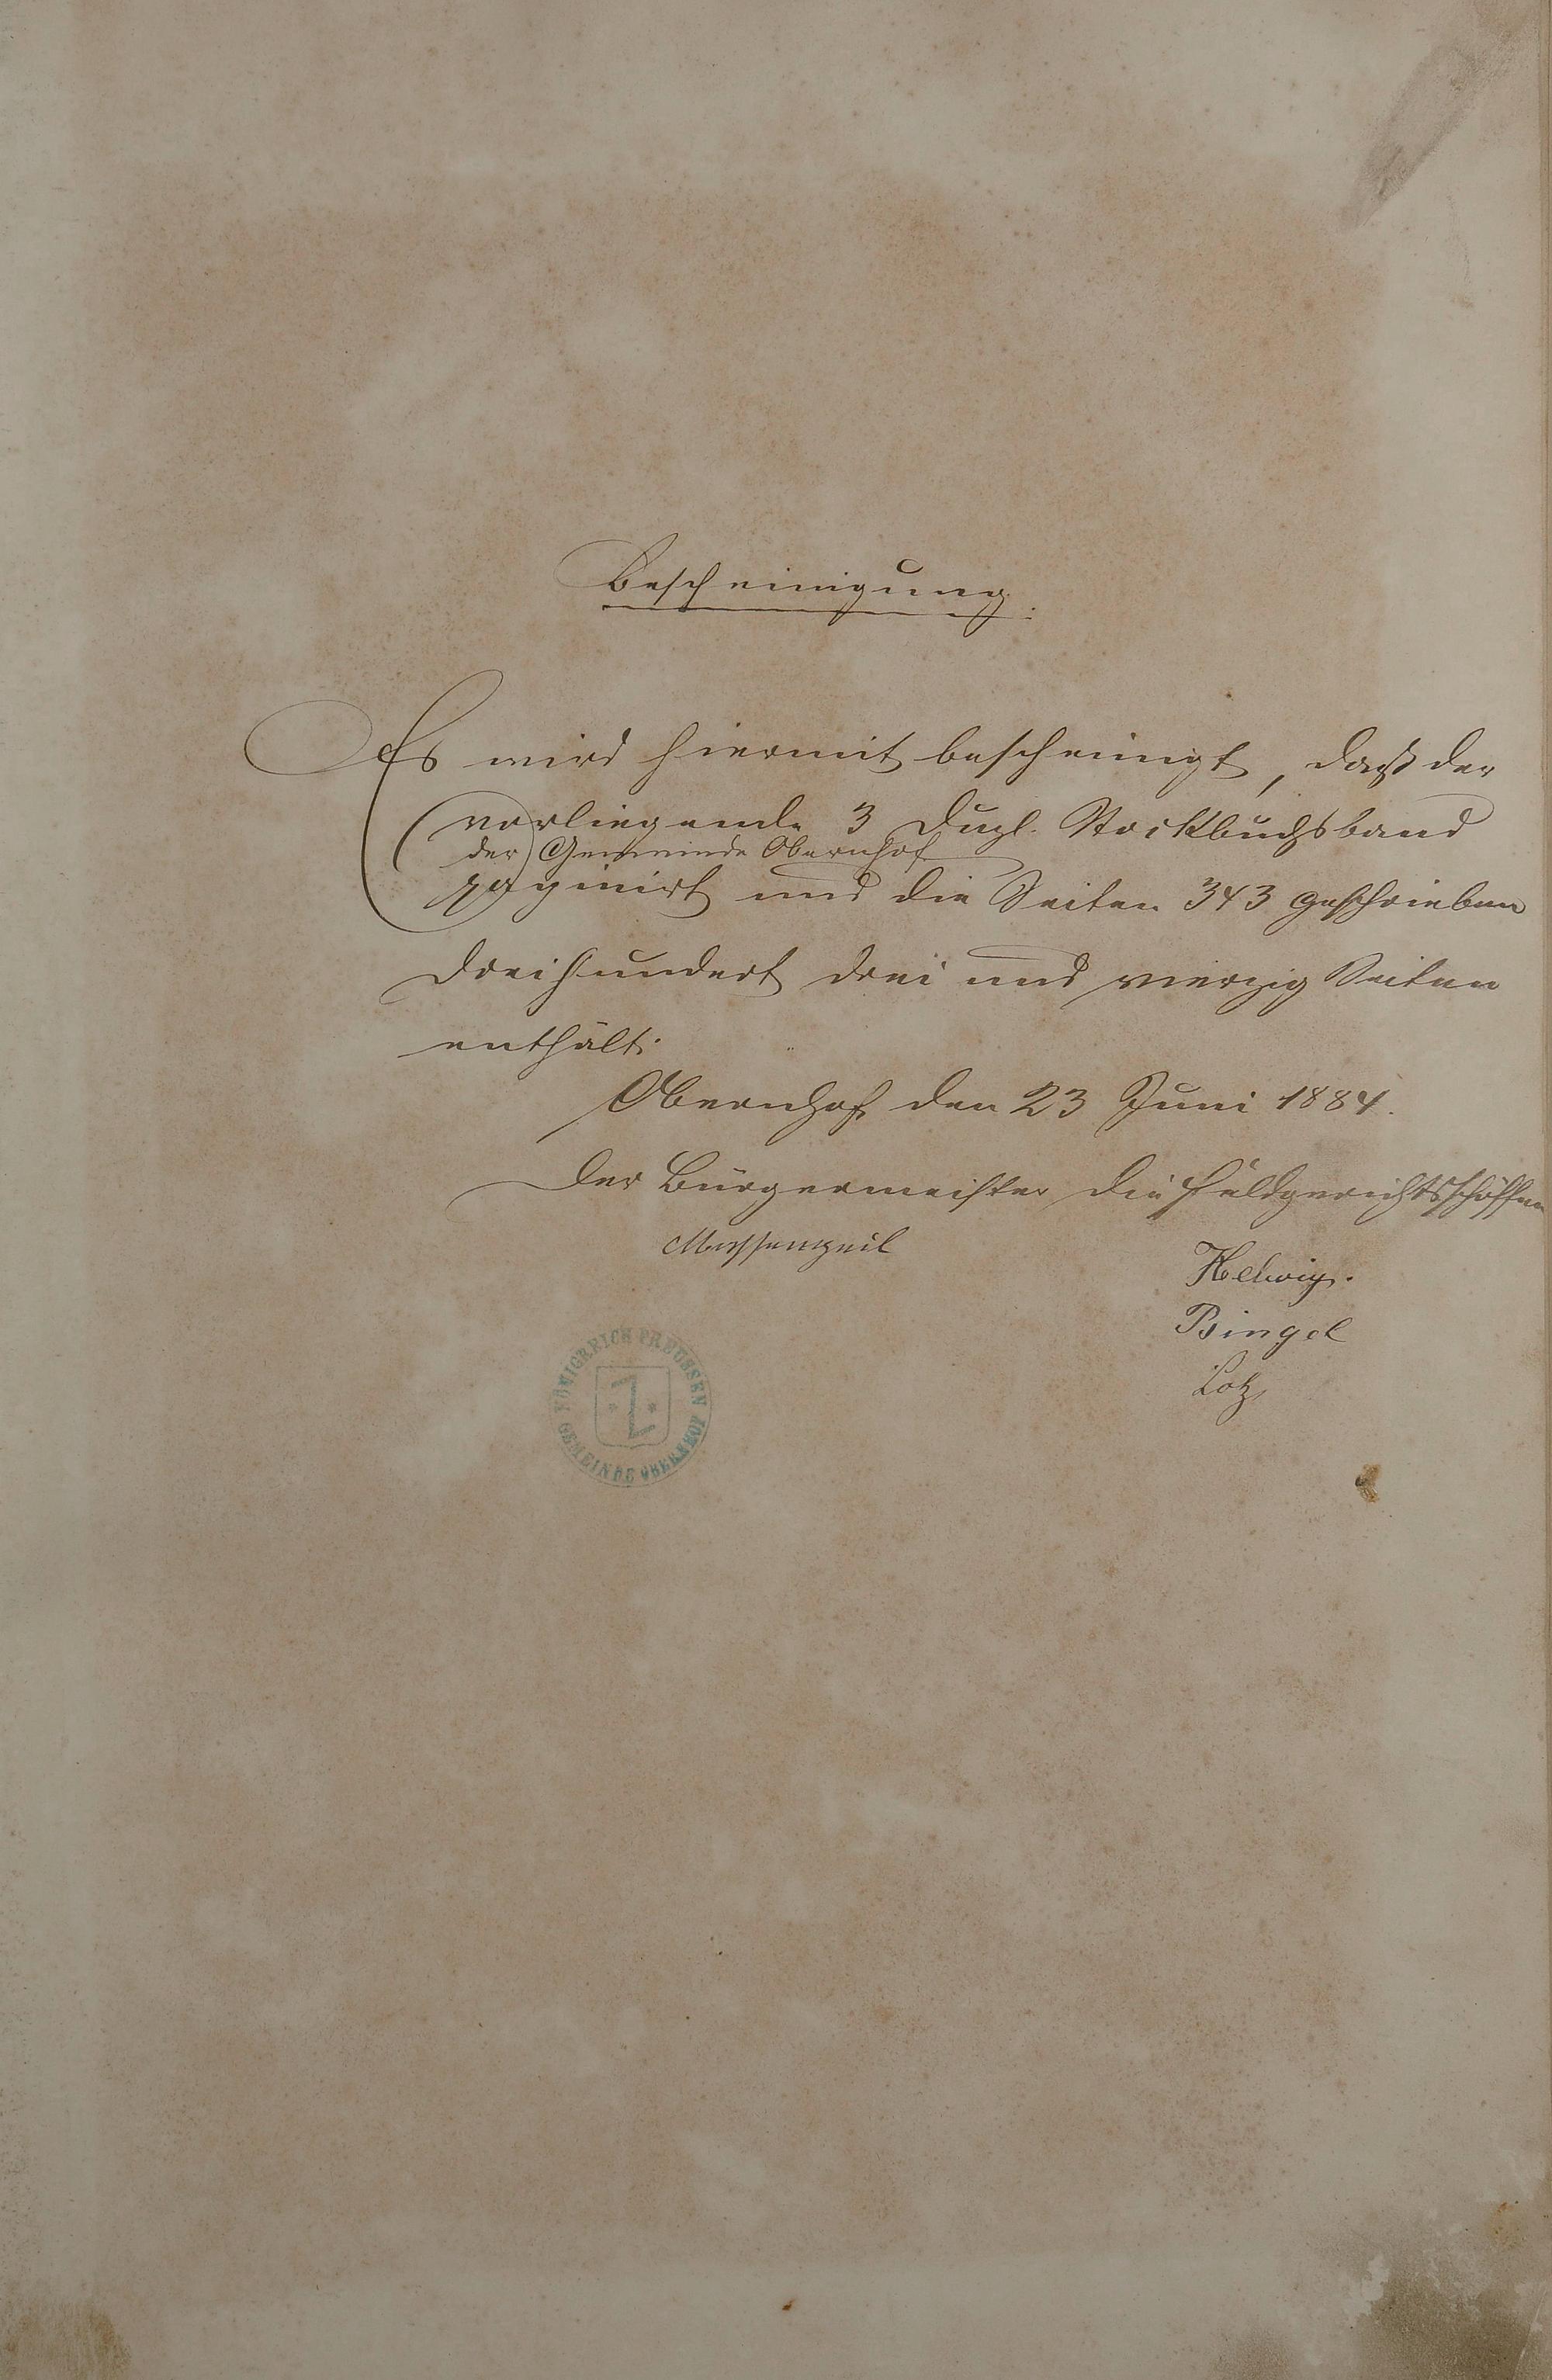 Bescheinigung:
Es wird hiermit bescheinigt, daß der
vorliegende 3 Dupl. Stockbuchsband
der Gemeinde Obernhof
paginirt und die Seiten 343 geschrieben
dreihundert drei und vierzig Seiten
enthält.
Obernhof den 23 Juni 1884.
Der Bürgermeister die Feldgerichtsschöffen
Massengeil
Helwig.
Bingel
Lotz
KÖNIGREICH PREUSSEN
GEMEINDE OBERNHOF